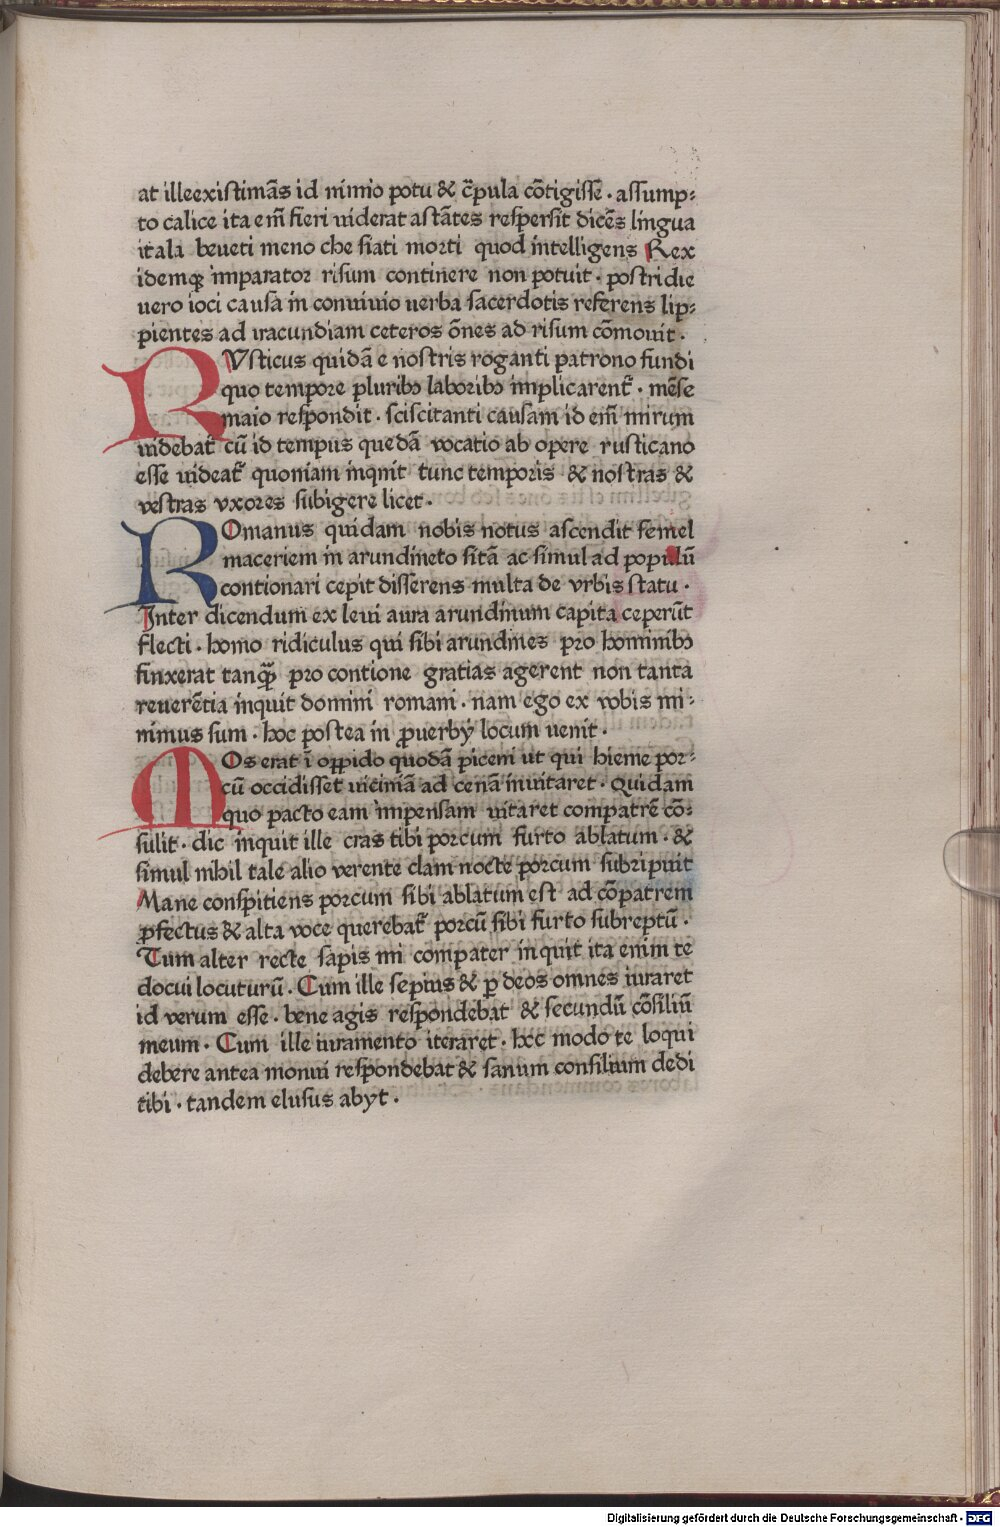 at ille existimās id nimio potu & c̄pula cōtigissē · assump⸗
to calice ita em̄ fieri uiderat astātes respersit dicēs lingua
itala beueti meno che siati morti quod intelligens Rex
idemqꝫ imparator risum continere non potuit · postridie
uero ioci causa in conuiuio uerba sacerdotis referens lip⸗
pientes ad iracundiam ceteros ōnes ad risum cōmouit ·
RVsticus quidā e nostris roganti patrono fundi
quo tempore pluribꝰ laboribꝰ implicarent᷑ · mēse
maio respondit · sciscitanti causam id em̄ mirum
uidebat᷑ cū id tempus quedā vocatio ab opere rusticano
esse uideat᷑ quoniam inquit tunc temporis & nostras &
vestras vxores subigere licet ·
ROmanus quidam nobis notus ascendit semel
maceriem in arundineto sitā ac simul ad populū
contionari cepit disserens multa de vrbis statu ·
Inter dicendum ex leui aura arundinum capita ceperūt
flecti · homo ridiculus qui sibi arundines pro hominibꝰ
finxerat tanqꝫ̄ pro contione gratias agerent non tanta
reuerētia inquit domini romani · nam ego ex vobis mi⸗
nimus sum · hoc postea in ꝓuerby locum uenit ·
MOs erat ī oꝑpido quodā piceni ut qui hieme por⸗
cū occidisset uiciniā ad cenā inuitaret · Quidam
quo pacto eam impensam uitaret compatrē cō⸗
sulit · dic inquit ille cras tibi porcum furto ablatum · &
simul nihil tale alio verente clam nocte porcum subripuit
Mane conspitiens porcum sibi ablatum est ad cōpatrem
ꝓfectus & alta voce querebat᷑ porcū sibi furto subreptū ·
Tum alter recte sapis mi compater inquit ita enim te
docui locuturū · Cum ille sepius & ꝑ deos omnes iuraret
id verum esse · bene agis respondebat & secundū cōsiliū
meum · Cum ille iuramento iteraret · hęc modo te loqui
debere antea monui respondebat & sanum consilium dedi
tibi · tandem elusus abyt ·
Digitalisierung gefördert durch die Deutsche Forschungsgemeinschaft - DFG